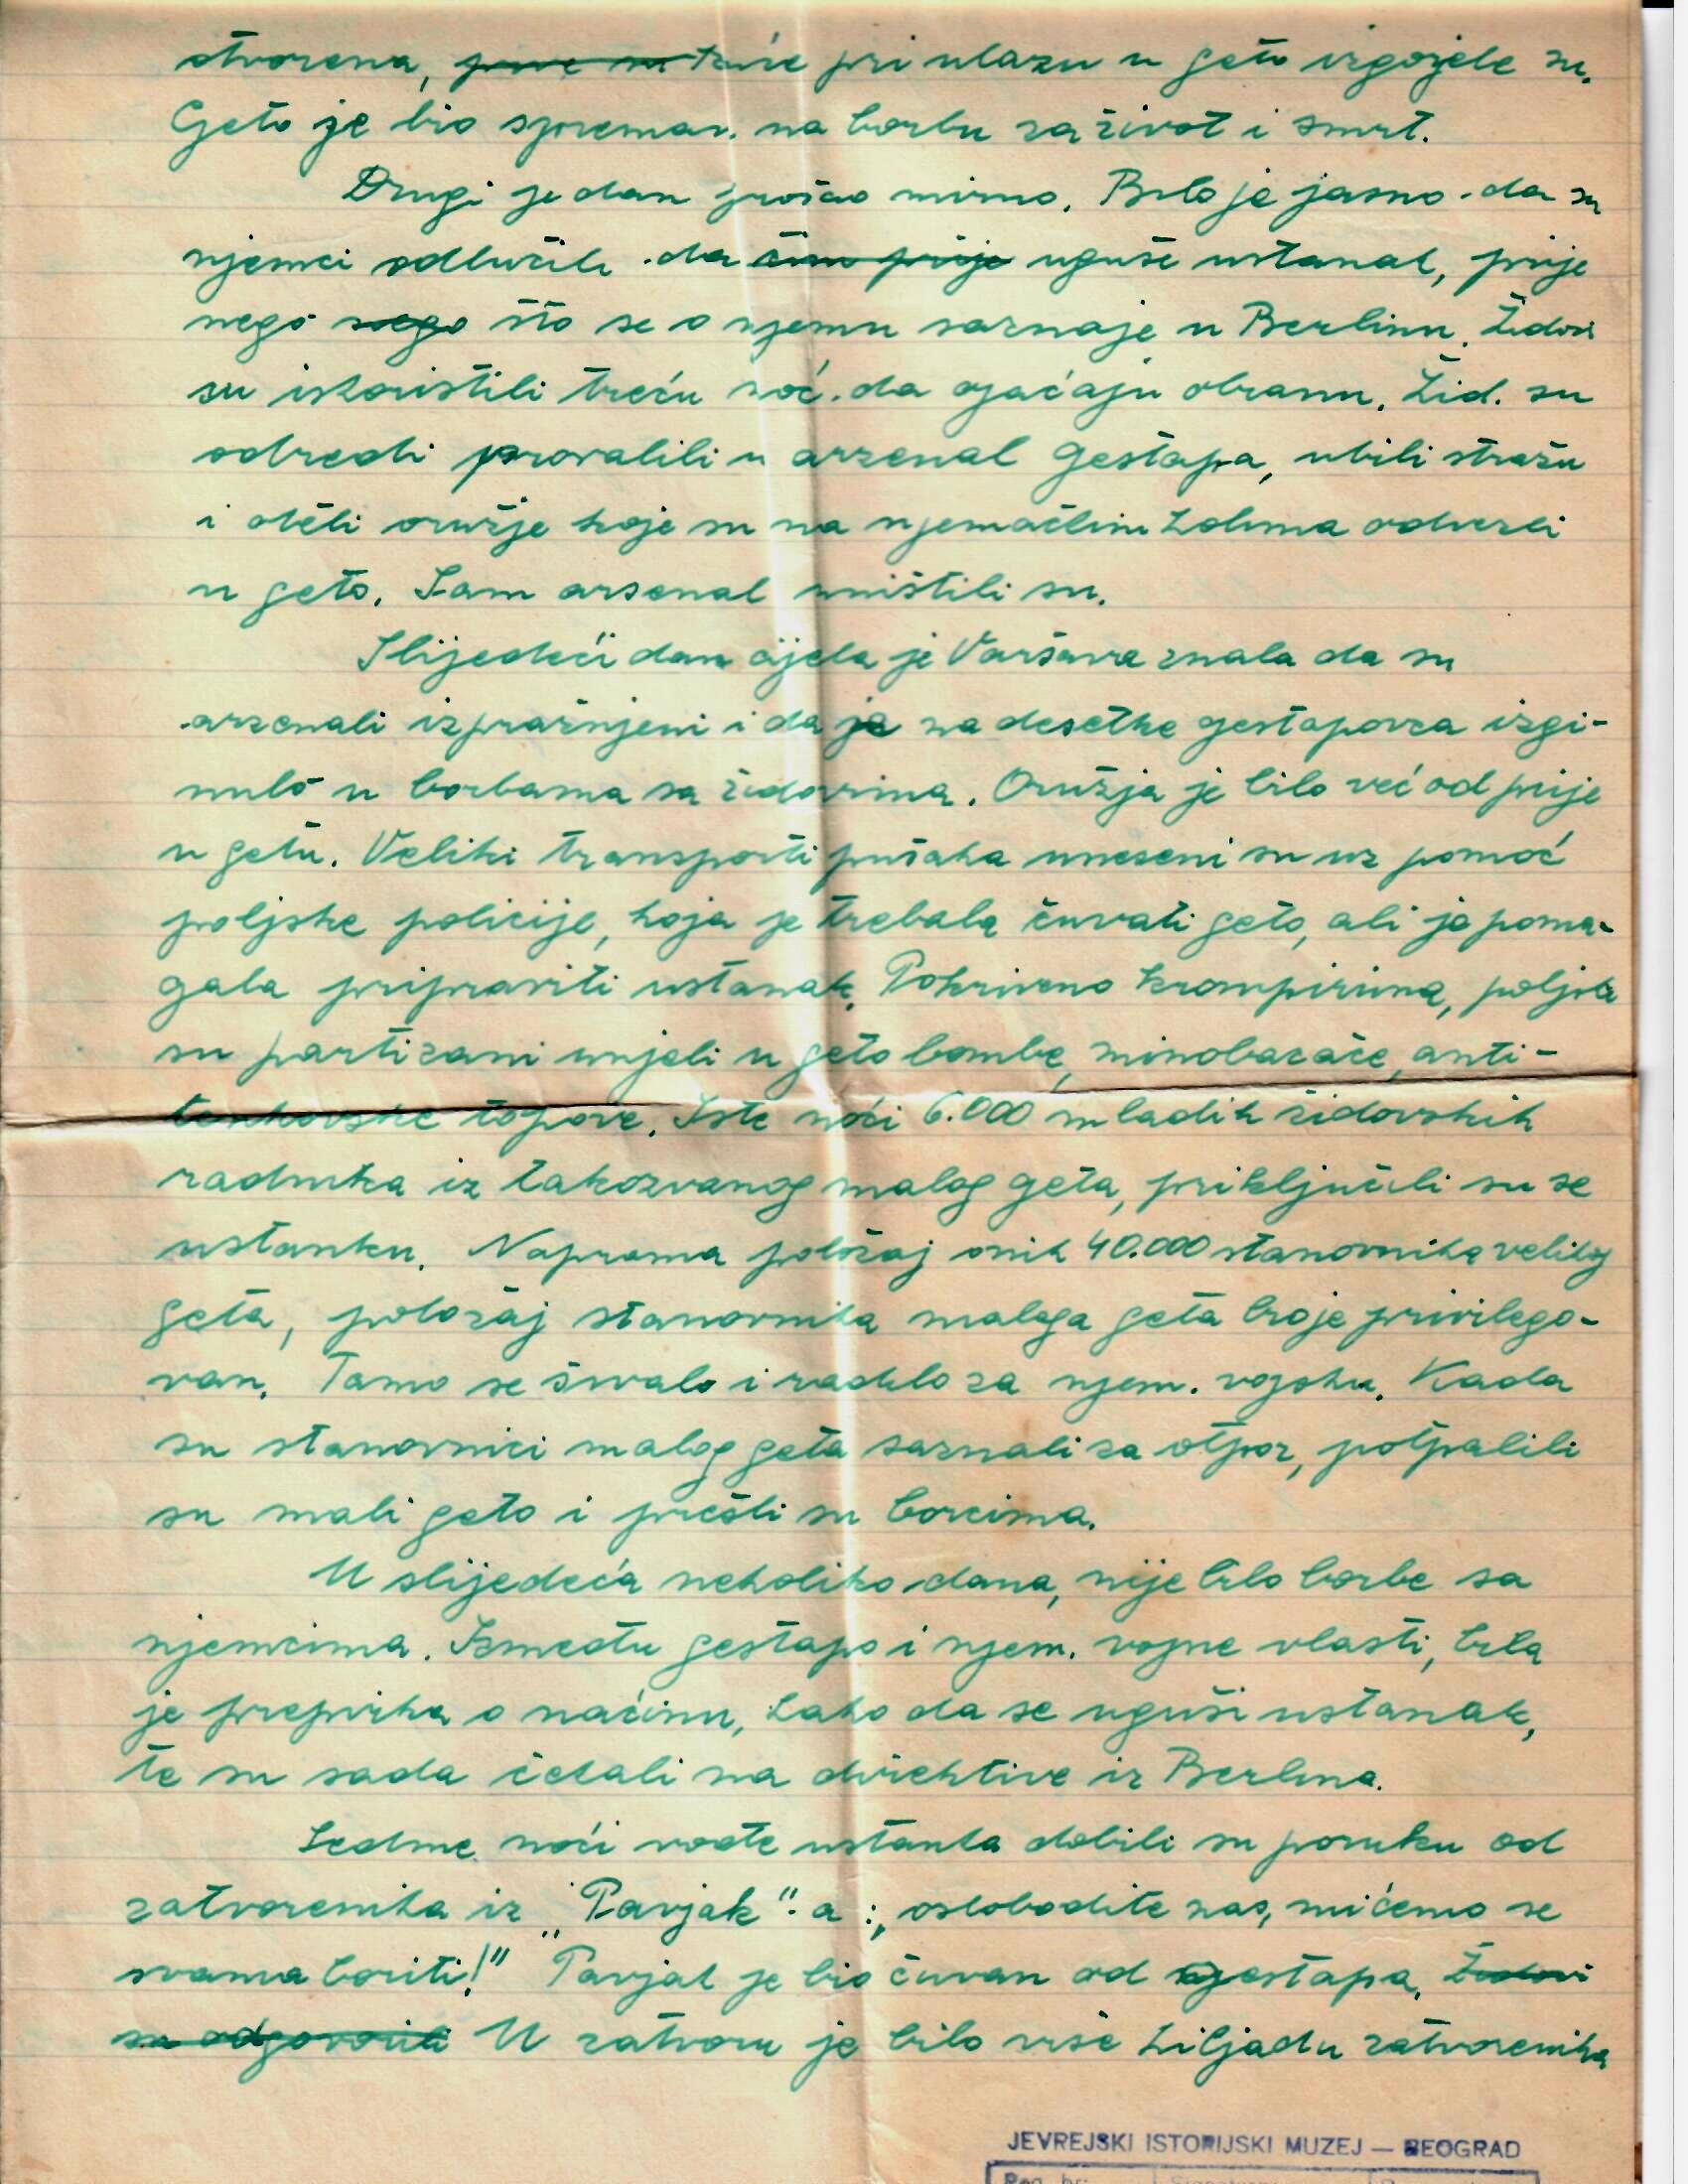 otvorena, kuće pri ulazu u geto izgorjele su.
Geto je bio spreman na borbu za život i smrt.
Drugi je dan prošao mirno. Bilo je jasno da su
njemci odlučili da čim prije uguše ustanak, prije
nego nego što se o njemu saznaje u Berlinu. Židovi
su iskoristili treću noć da ojačaju obranu. Žid. su
odredi provalili u arzenal Gestapa, ubili stražu
i oteli oružje koje su na njemačkim kolima odvezli
u geto. Sam arsenal uništili su.
Slijedeći dan cijela je Varšava znala da su
arzenali izpražnjeni i da je na desetke gestapovca izgi-
nulo u borbama sa židovima. Oružja je bilo već od prije
u getu. Veliki transporti pušaka uneseni su uz pomoć
poljske policije, koja je trebala čuvati geto, ali je poma-
gala pripraviti ustanak. Pokriveno krompirima, poljski
su partizani unjeli u geto bombe, minobacače, anti-
tenkovske topove. Iste noći 6.000 mladih židovskih
radnika iz takozvanog malog geta, priključili su se
ustanku. Naprama položaj onih 40.000 stanovnika velikog
geta, položaj stanovnika maloga geta bio je privilego-
van. Tamo se šivalo i radilo za njem. vojsku. Kada
su stanovnici malog geta saznali za otpor, potpalili
su mali geto i prešli su borcima.
U slijedeća nekoliko dana, nije bilo borbe sa
njemcima. Između gestapo i njem. vojne vlasti, bila
je prepirka o načinu, kako da se uguši ustanak,
te su sada čekali na direktive iz Berlina.
Sedme noći vođe ustanka dobili su poruku od
zatvorenika iz „Pavjak"-a: „oslobodite nas, mi ćemo se
svama boriti!" Pavjak je bio čuvan od gestapa. Židovi
su odgovorili U zatvoru je bilo više hiljadu zatvorenika
JEVREJSKI ISTORIJSKI MUZEJ — BEOGRAD
Reg. br.